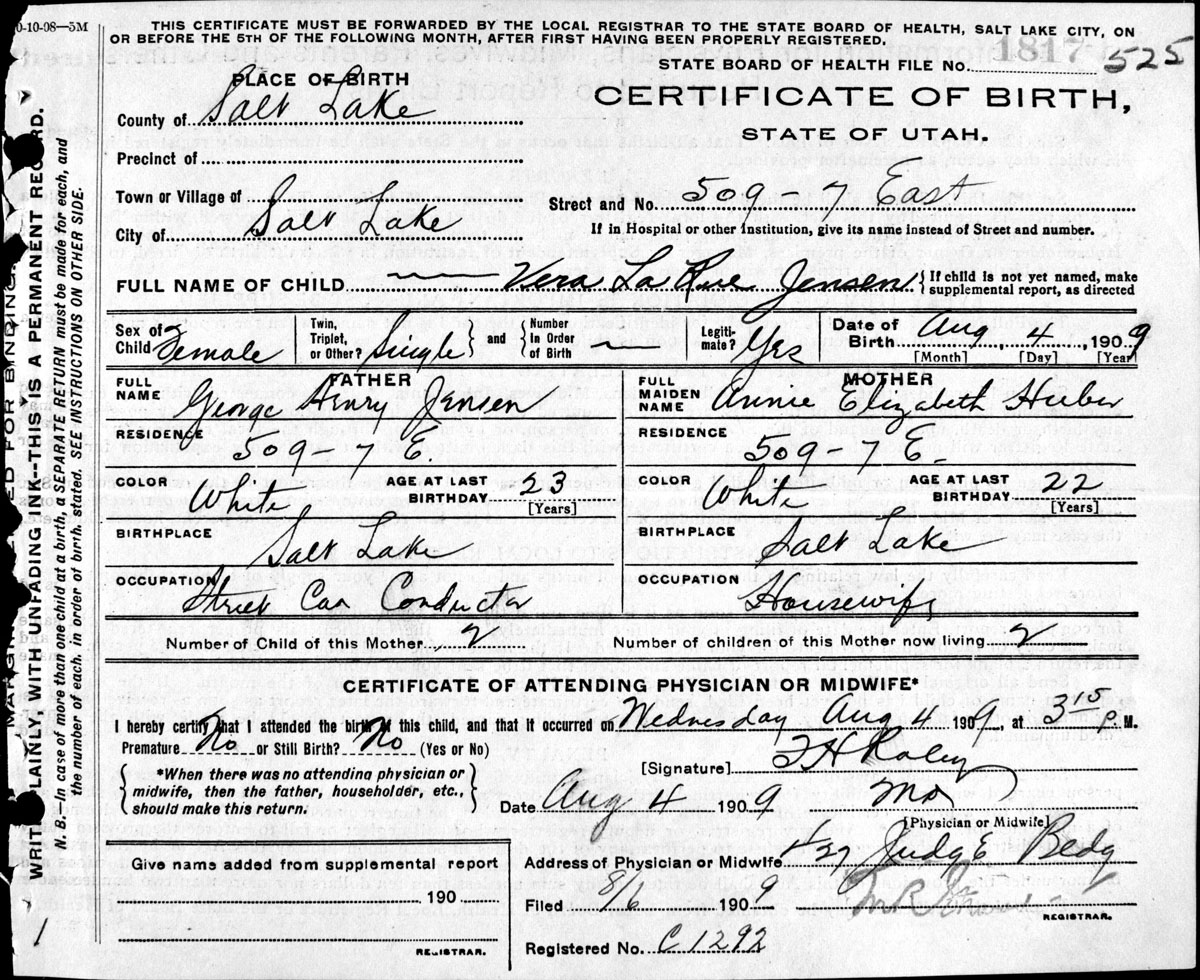 0-10-08—5M
THIS CERTIFICATE MUST BE FORWARDED BY THE LOCAL REGISTRAR TO THE STATE BOARD OF HEALTH, SALT LAKE CITY, ON
OR BEFORE THE 5TH OF THE FOLLOWING MONTH, AFTER FIRST HAVING BEEN PROPERLY REGISTERED.
STATE BOARD OF HEALTH FILE No. 1817 525
PLACE OF BIRTH
CERTIFICATE OF BIRTH,
STATE OF UTAH.
County of Salt Lake
Precinct of
Town or Village of
City of Salt Lake
Street and No. 509 - 7 East
If in Hospital or other Institution, give its name instead of Street and number.
FULL NAME OF CHILD Vera La Rue Jensen { If child is not yet named, make supplemental report, as directed
Sex of Child Female
Twin, Triplet, or Other? Single } and { Number In Order of Birth —
Legitimate? Yes
Date of Birth Aug, 4, 1909
[Month] [Day] [Year]
FATHER
FULL NAME George Henry Jensen
RESIDENCE 509 - 7 E.
COLOR White
AGE AT LAST BIRTHDAY 23 [Years]
BIRTHPLACE Salt Lake
OCCUPATION Street Car Conductor
MOTHER
FULL MAIDEN NAME Annie Elizabeth Huber
RESIDENCE 509 - 7 E
COLOR White
AGE AT LAST BIRTHDAY 22 [Years]
BIRTHPLACE Salt Lake
OCCUPATION Housewife
Number of Child of this Mother 2
Number of children of this Mother now living 2
CERTIFICATE OF ATTENDING PHYSICIAN OR MIDWIFE*
I hereby certify that I attended the birth of this child, and that it occurred on Wednesday Aug 4 1909, at 3 15 P. M.
Premature No or Still Birth? No (Yes or No)
{ *When there was no attending physician or midwife, then the father, householder, etc., should make this return. }
[Signature] F H Raley
Date Aug 4 1909 MD
[Physician or Midwife]
Give name added from supplemental report
190
REGISTRAR.
Address of Physician or Midwife 427 Judge Bedg
Filed 8/6 1909
REGISTRAR.
Registered No. C 1292
WRITE PLAINLY, WITH UNFADING INK--THIS IS A PERMANENT RECORD.
N. B.—In case of more than one child at a birth, a SEPARATE RETURN must be made for each, and
the number of each, in order of birth, stated. SEE INSTRUCTIONS ON OTHER SIDE.
FOR BINDING.
1